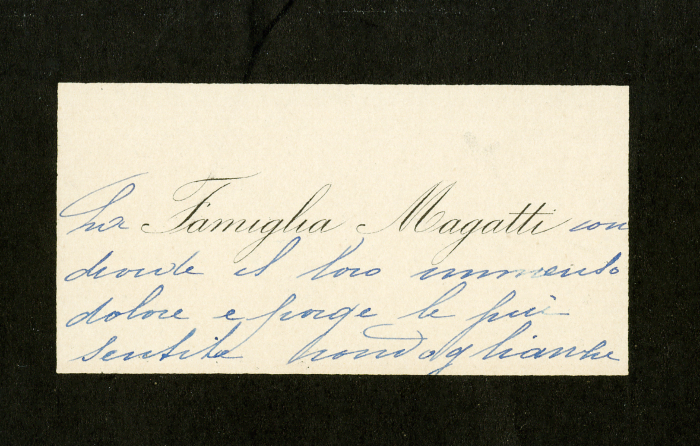 La Famiglia Magatti con
divide il loro immenso
dolore e porge le più
sentite condoglianze